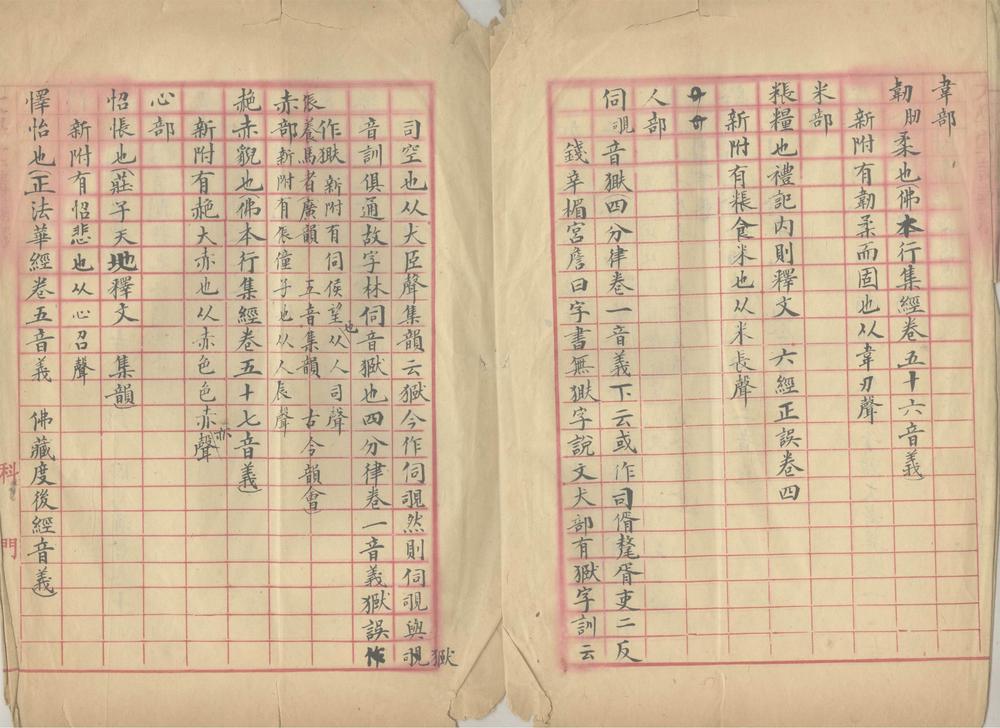 韋部
韌肕柔也佛本行集經卷五十六音義
新附有韌柔而固也从韋刃聲
米部
粻糧也禮記內則釋文 六經正誤卷四
新附有粻食米也从米長聲
人部
伺覗音獄四分律卷一音義下云或作司偦墊胥吏二反
錢辛楣宮詹曰字書無獄字說文犬部有獄字訓云
司空也从犬臣聲集韻云獄今作伺覗然則伺覗與覗獄
音訓俱通故字林伺音獄也四分律卷一音義獄誤作
作獄 新附有伺候望也从人司聲
倀養馬者廣韻 五音集韻 古今韻會
赤部 新附有倀僮子也从人長聲
赩赤貌也佛本行集經卷五十七音義
新附有赩大赤也从赤色色亦聲
心部
怊悵也莊子天地釋文 集韻
新附有怊悲也从心召聲
懌怡也正法華經卷五音義 佛藏度後經音義
科
門